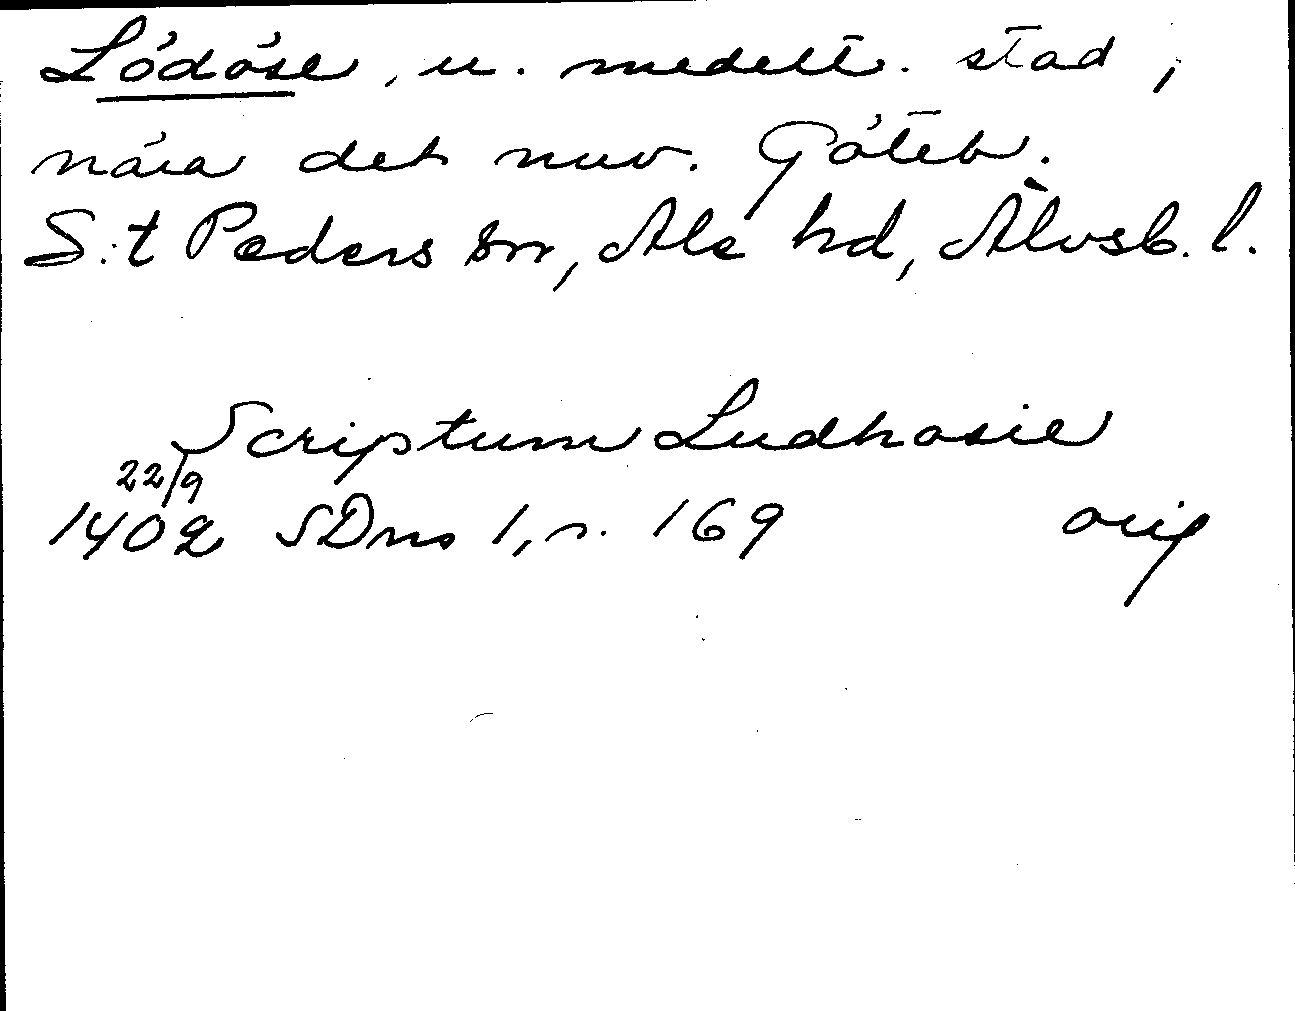 Lödöse, u. medelt. stad,
nära det nuv. Göteb.
S:t Peders sn, Ale hd, Älvsb. l.
Scriptum Ludhosie
22/9
1402 SDns 1, s. 169 orig